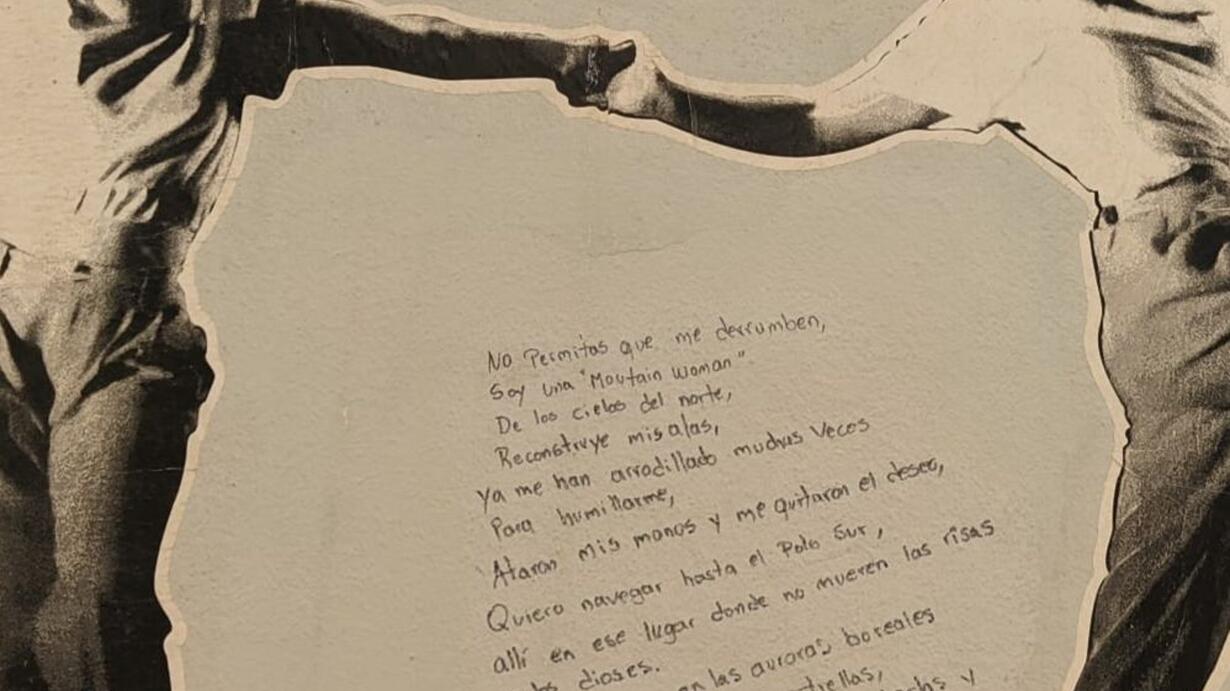 No Permitas que me derrumben,
Soy una "Moutain woman".
De los cielos del norte,
Reconstruye mis alas,
Ya me han arrodillado muchas veces
Para humillarme,
Ataron mis manos y me quitaron el deseo,
Quiero navegar hasta el Polo Sur,
allí en ese lugar donde no mueren las risas
dioses.
las auroras boreales
y